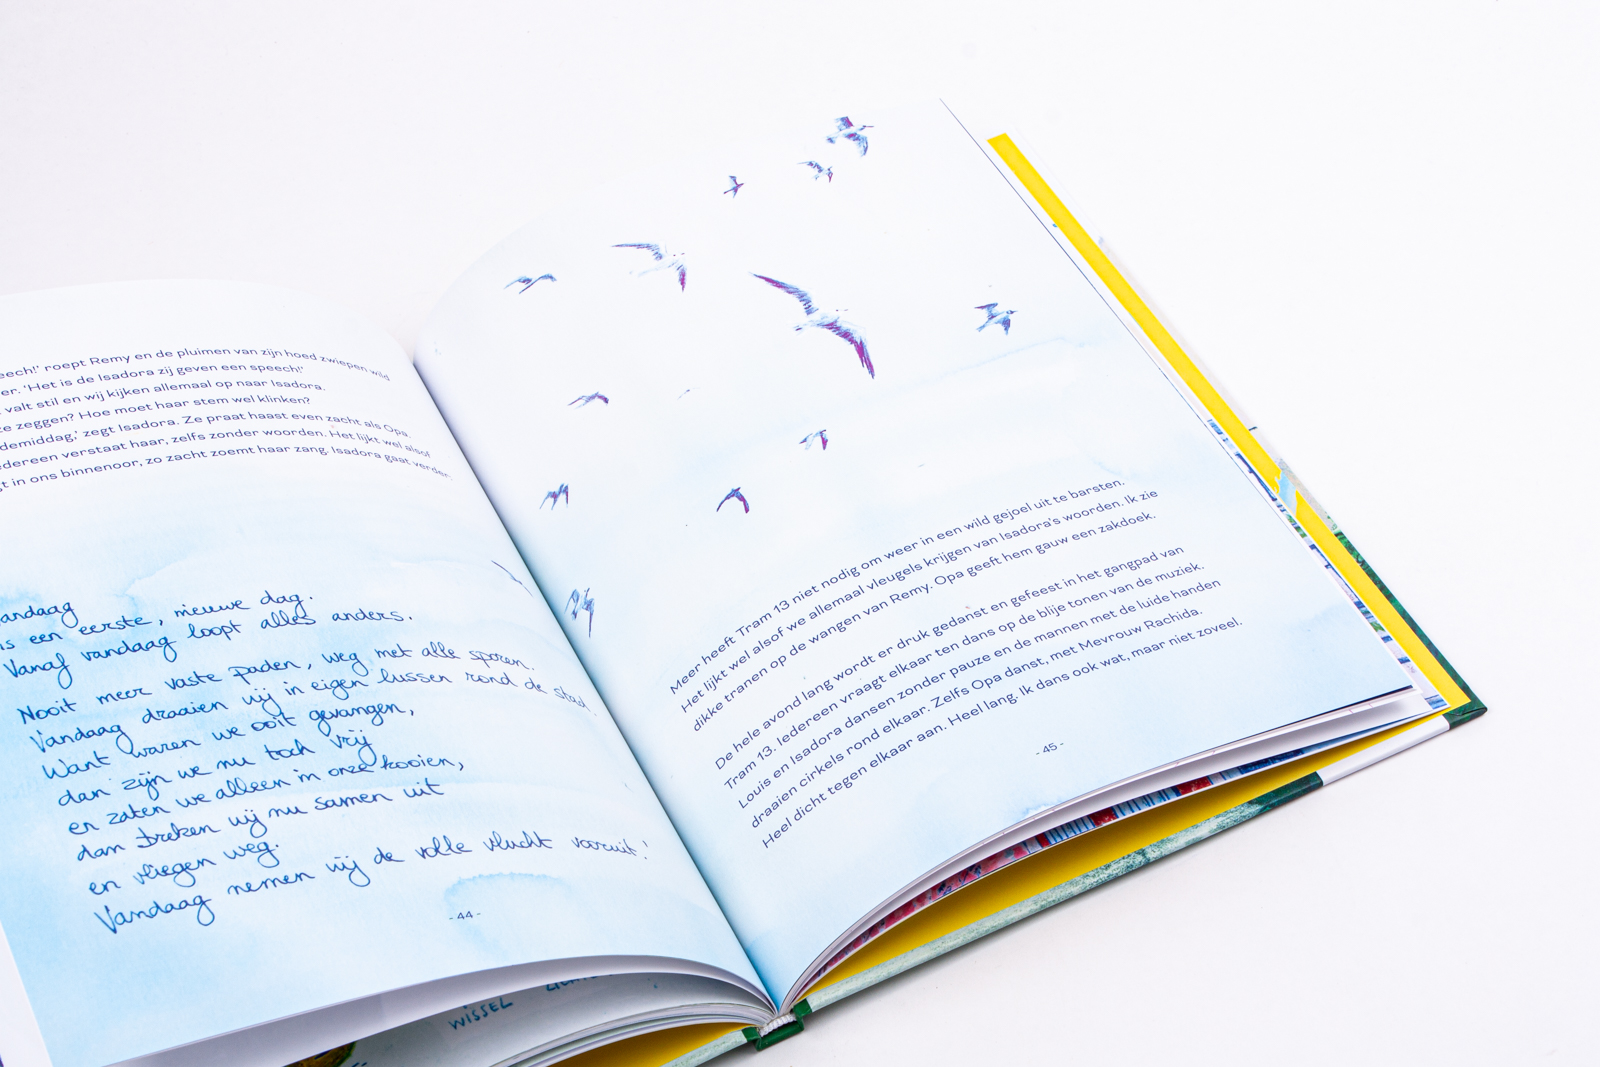 eech!' roept Remy en de pluimen van zijn hoed zwiepen wild
er. 'Het is de Isadora zij geven een speech!'
valt stil en wij kijken allemaal op naar Isadora.
ze zeggen? Hoe moet haar stem wel klinken?
demiddag,' zegt Isadora. Ze praat haast even zacht als Opa.
edereen verstaat haar, zelfs zonder woorden. Het lijkt wel alsof
gt in ons binnenoor, zo zacht zoemt haar zang. Isadora gaat verder.
andaag
is een eerste, nieuwe dag.
Vanaf vandaag loopt alles anders.
Nooit meer vaste paden, weg met alle sporen.
Vandaag draaien wij in eigen lussen rond de stad.
Want waren we ooit gevangen,
dan zijn we nu toch vrij
en zaten we alleen in onze kooien,
dan breken wij nu samen uit
en vliegen weg.
Vandaag nemen wij de volle vlucht vooruit!
- 44 -
Meer heeft Tram 13 niet nodig om weer in een wild gejoel uit te barsten.
Het lijkt wel alsof we allemaal vleugels krijgen van Isadora's woorden. Ik zie
dikke tranen op de wangen van Remy. Opa geeft hem gauw een zakdoek.
De hele avond lang wordt er druk gedanst en gefeest in het gangpad van
Tram 13. Iedereen vraagt elkaar ten dans op de blije tonen van de muziek.
Louis en Isadora dansen zonder pauze en de mannen met de luide handen
draaien cirkels rond elkaar. Zelfs Opa danst, met Mevrouw Rachida.
Heel dicht tegen elkaar aan. Heel lang. Ik dans ook wat, maar niet zoveel.
- 45 -
WISSEL